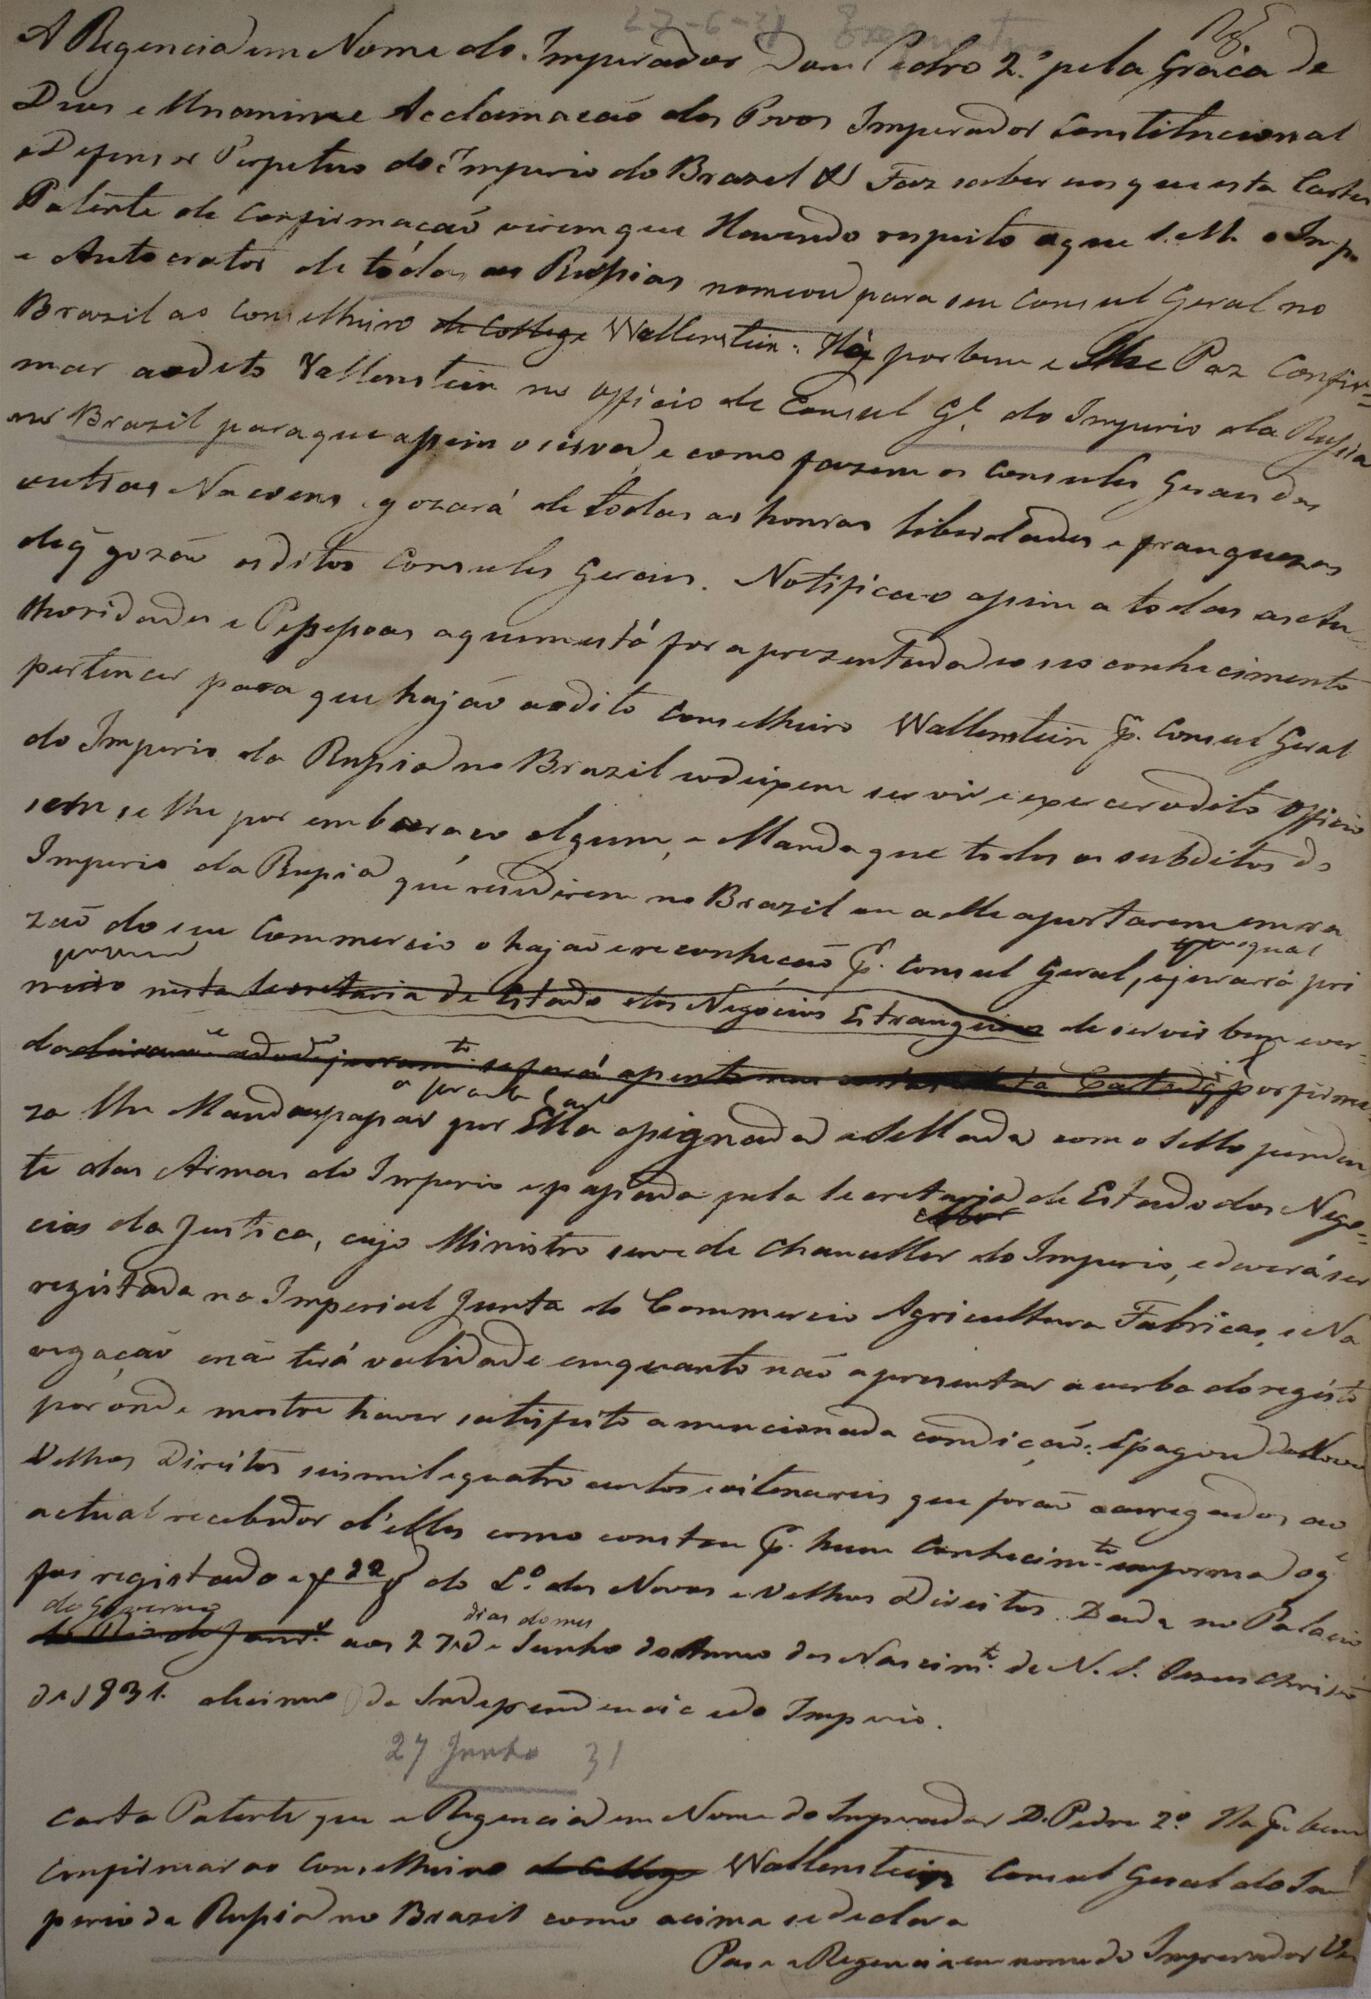 27-6-31
A Regencia em Nome do Imperador Dom Pedro 2.º pela Graça de
Deos e Unanime Acclamação dos Povos Imperador Constitucional
e Defensor Perpetuo do Imperio do Brazil & Faz saber aos que esta Carta
Patente de Confirmação virem que Havendo respeito a que S. M. o Imp.
e Autocrator de todas as Russias nomeou para seu Consul Geral no
Brazil ao Conselheiro de Collegio Wallenstein. Há por bem e lhe Paz Confir-
mar ao dito Wallenstein no Officio de Consul G.l do Imperio da Russia
no Brazil para que assim o sirva, e como fazem os Consules Geraes das
outras Nacoens, gozará de todas as honras liberdades e franquezas
de q̃ gozão os ditos Consules Geraes. Notificao assim a todas as Au-
thoridades e Pessoas a quem esta for aprezentada e o seo conhecimento
pertencer para que hajão ao dito Conselheiro Wallenstein p.r Consul Geral
do Imperio da Russia no Brazil e o deixem servir e exercer o dito Officio
sem se lhe por embaraço algum, e Manda que todos os subditos do
Imperio da Russia que residirem no Brazil ou a elle aportarem em ra
zaõ do seu Commercio o hajão e reconheção p.r Consul Geral, e jurará pri
o qual
meiro nesta Secretaria de Estado dos Negocios Estrangeiros de servir bem e ver-
da por firme
za lhe Mandou passar por Ella assignada e Sellada com o Sello penden
te das Armas do Imperio e passada pela Secretaria de Estado dos Nego-
cios da Justiça, cujo Ministro serve de Chanceller do Imperio, e deverá ser
registada na Imperial Junta do Commercio Agricultura Fabricas, e Na
vegação e não terá validade em quanto não apresentar a verba do registo
por onde mostre haver satisfeito a mencionada condição. E pagou de Novos
Velhos Direitos seis mil e quatro centos e oitenta reis que forão carregados ao
actual recebedor d'elles como constou p.r hum Conhecim.to em forma o q̃
foi registado a f 22 do L.º dos Novos e Velhos Direitos. Dada no Palacio
do Governo
do Rio de Janr.º aos 27 de Junho do Anno do Nascim.to de N. S. Jesus Christo
dias do mes
de 1831. decimo da Independencia e do Imperio.
27 Junho 31
Carta Patente que a Regencia em Nome do Imperador D. Pedro 2.º Há p.r bem
Confirmar ao Conselheiro de Colleg Wallenstein Consul Geral do Im
perio da Russia no Brazil como acima se declara
Para a Regencia em nome do Imperador Ver